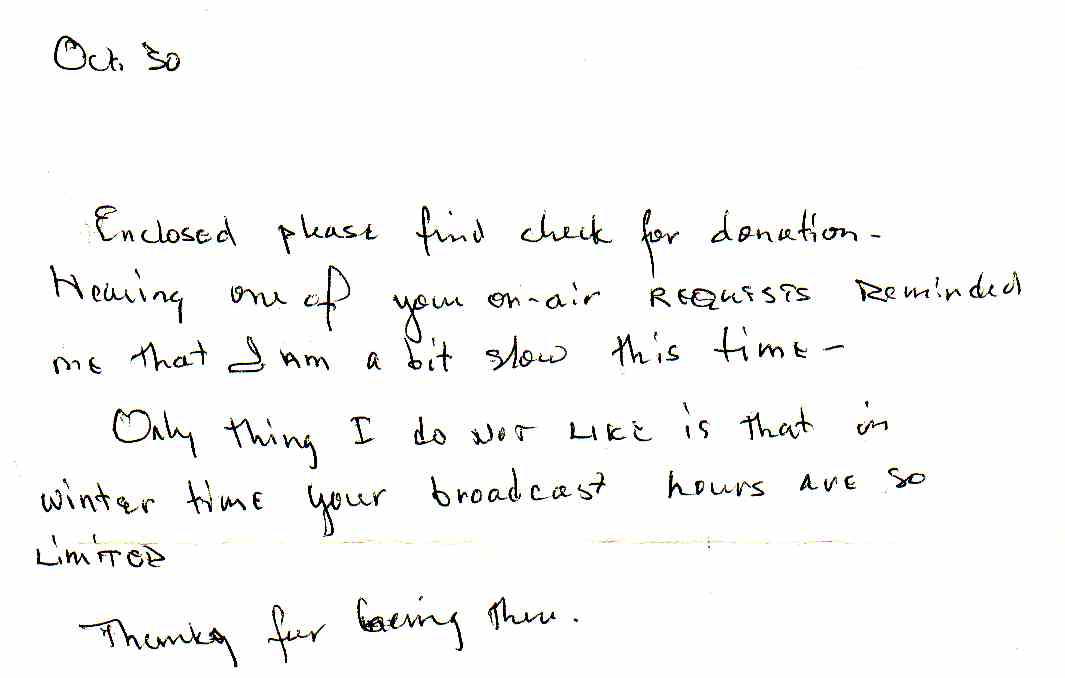 Oct. 30
Enclosed please find check for donation -
Hearing one of your on-air REQUESTS Reminded
me that I am a bit slow this time -
Only thing I do NOT LIKE is that in
winter time your broadcast hours are so
LIMITED
Thanks for being there.